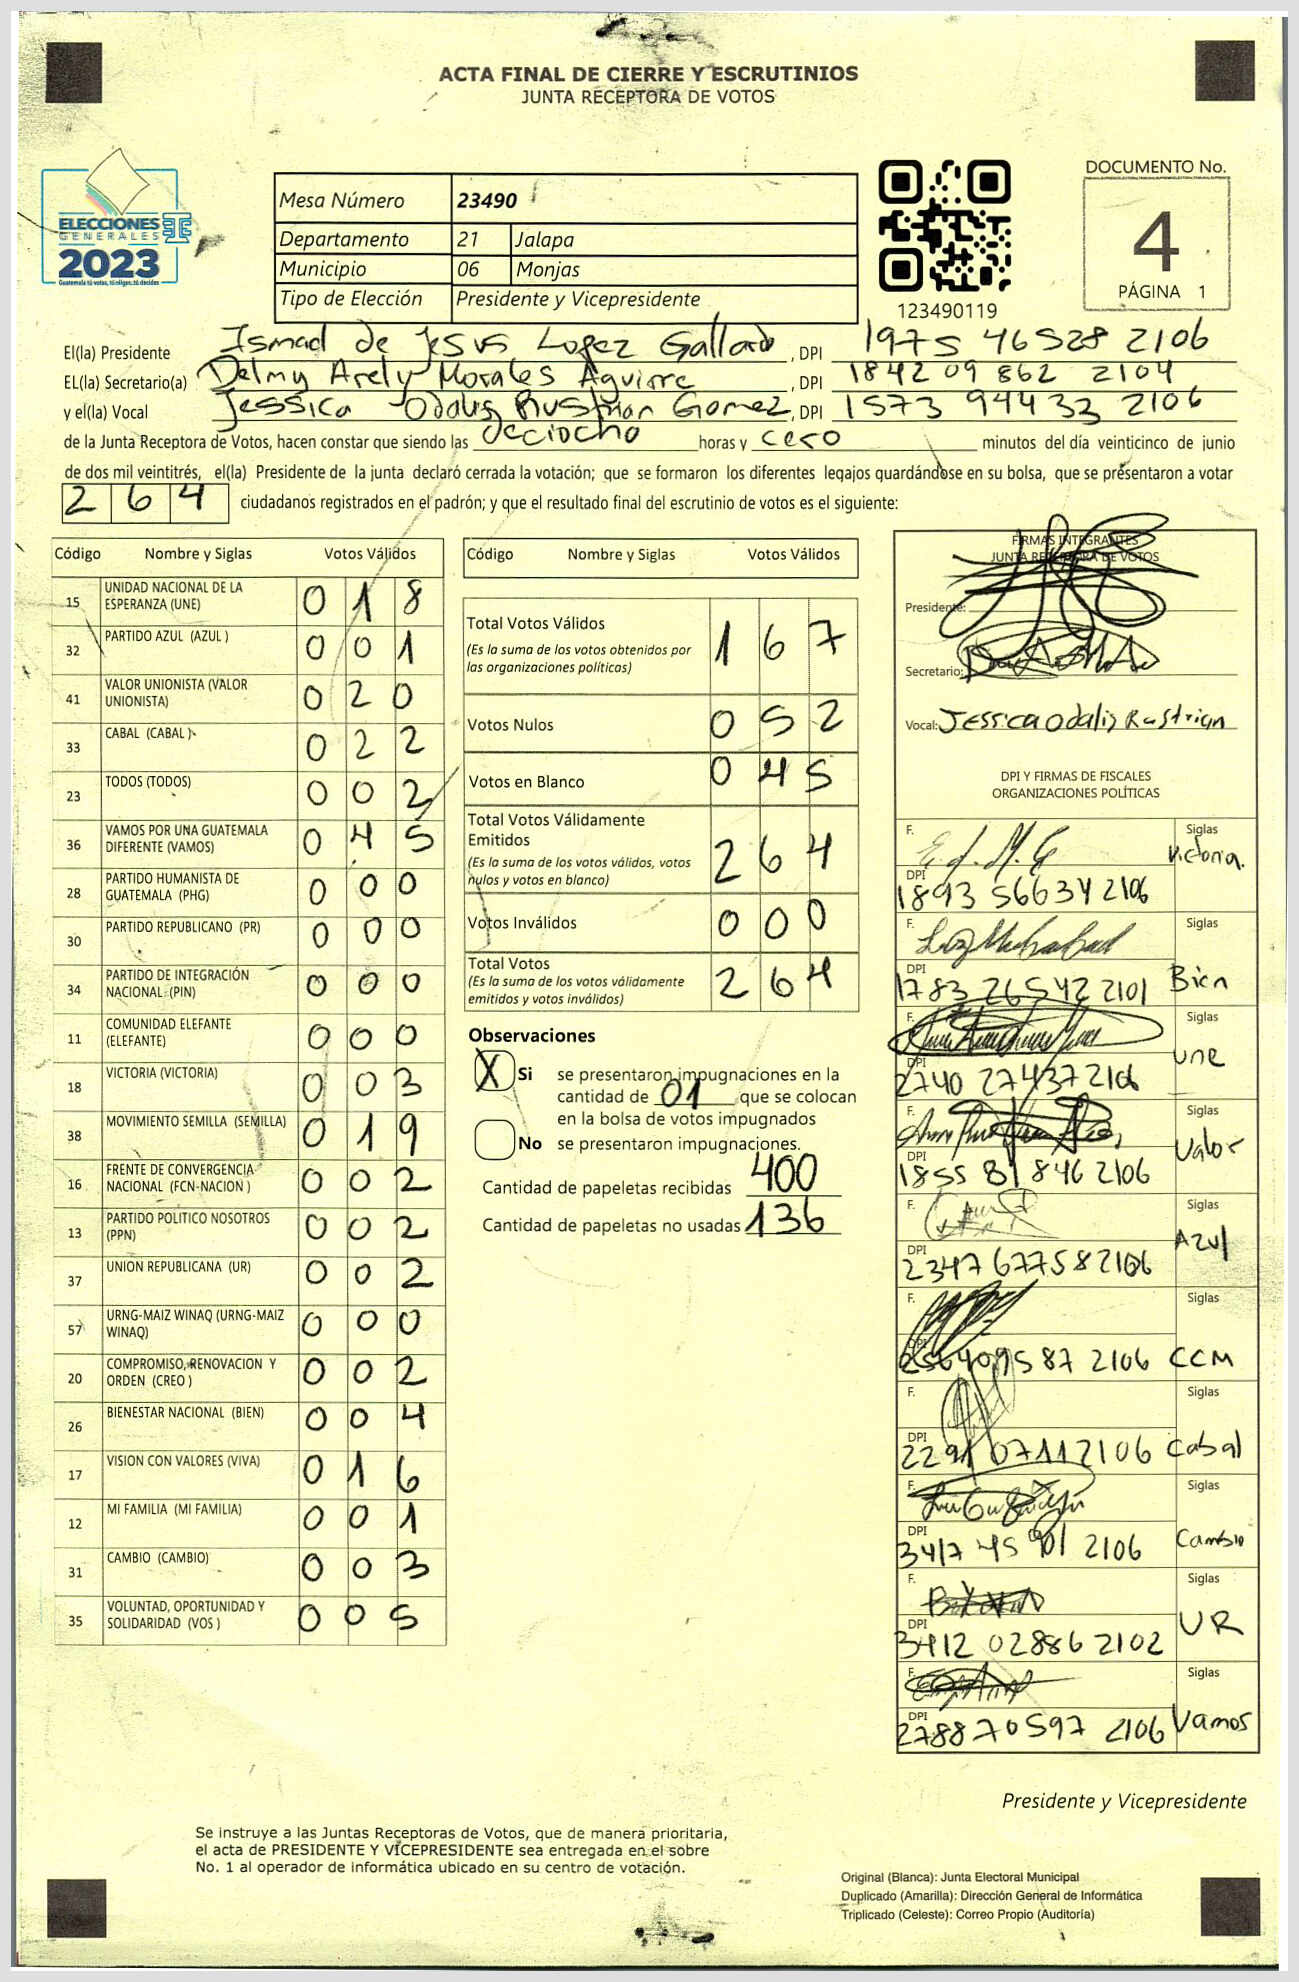 ACTA FINAL DE CIERRE Y ESCRUTINIOS
JUNTA RECEPTORA DE VOTOS
ELECCIONES
GENERALES
2023
Guatemala tú votas, tú eliges, tú decides
Mesa Número 23490
Departamento 21 Jalapa
Municipio 06 Monjas
Tipo de Elección Presidente y Vicepresidente
123490119
DOCUMENTO No.
4
PÁGINA 1
El(la) Presidente Ismael de Jesus Lopez Gallardo, DPI 1975 46528 2106
EL(la) Secretario(a) Delmy Arely Morales Aguirre, DPI 1842 09 862 2104
y el(la) Vocal Jessica Odalis Rustrian Gomez, DPI 1573 94433 2106
de la Junta Receptora de Votos, hacen constar que siendo las deciocho horas y cero minutos del día veinticinco de junio
de dos mil veintitrés, el(la) Presidente de la junta declaró cerrada la votación; que se formaron los diferentes legajos guardándose en su bolsa, que se présentaron a votar
2 6 4 ciudadanos registrados en el padrón; y que el resultado final del escrutinio de votos es el siguiente:
Código Nombre y Siglas Votos Válidos
15 UNIDAD NACIONAL DE LA ESPERANZA (UNE) 0 1 8
32 PARTIDO AZUL (AZUL ) 0 0 1
41 VALOR UNIONISTA (VALOR UNIONISTA) 0 2 0
33 CABAL (CABAL ) 0 2 2
23 TODOS (TODOS) 0 0 2
36 VAMOS POR UNA GUATEMALA DIFERENTE (VAMOS) 0 4 5
28 PARTIDO HUMANISTA DE GUATEMALA (PHG) 0 0 0
30 PARTIDO REPUBLICANO (PR) 0 0 0
34 PARTIDO DE INTEGRACIÓN NACIONAL (PIN) 0 0 0
11 COMUNIDAD ELEFANTE (ELEFANTE) 0 0 0
18 VICTORIA (VICTORIA) 0 0 3
38 MOVIMIENTO SEMILLA (SEMILLA) 0 1 9
16 FRENTE DE CONVERGENCIA NACIONAL (FCN-NACION ) 0 0 2
13 PARTIDO POLITICO NOSOTROS (PPN) 0 0 2
37 UNION REPUBLICANA (UR) 0 0 2
57 URNG-MAIZ WINAQ (URNG-MAIZ WINAQ) 0 0 0
20 COMPROMISO, RENOVACION Y ORDEN (CREO ) 0 0 2
26 BIENESTAR NACIONAL (BIEN) 0 0 4
17 VISION CON VALORES (VIVA) 0 1 6
12 MI FAMILIA (MI FAMILIA) 0 0 1
31 CAMBIO (CAMBIO) 0 0 3
35 VOLUNTAD, OPORTUNIDAD Y SOLIDARIDAD (VOS ) 0 0 5
Código Nombre y Siglas Votos Válidos
Total Votos Válidos 1 6 7
(Es la suma de los votos obtenidos por
las organizaciones políticas)
Votos Nulos 0 5 2
Votos en Blanco 0 4 5
Total Votos Válidamente
Emitidos 2 6 4
(Es la suma de los votos válidos, votos
nulos y votos en blanco)
Votos Inválidos 0 0 0
Total Votos 2 6 4
(Es la suma de los votos válidamente
emitidos y votos inválidos)
Observaciones
X Si se presentaron impugnaciones en la
cantidad de 01 que se colocan
en la bolsa de votos impugnados
No se presentaron impugnaciones.
Cantidad de papeletas recibidas 400
Cantidad de papeletas no usadas 136
FIRMAS INTEGRANTES
JUNTA RECEPTORA DE VOTOS
Presidente:
Secretario:
Vocal: Jessica Odalis Rustrian
DPI Y FIRMAS DE FISCALES
ORGANIZACIONES POLÍTICAS
F. Siglas Victoria.
DPI 1893 56634 2106
F. Siglas Bien
DPI 1783 26542 2101
F. Siglas une
DPI 2740 27437 2106
F. Siglas Valor
DPI 1855 81 846 2106
F. Siglas Azul
DPI 2347 67758 2106
F. Siglas CCM
DPI 2106
F. Siglas Cabal
DPI 2291 07112106
F. Siglas Cambio
DPI 3417 45 901 2106
F. Siglas UR
DPI 3412 02886 2102
F. Siglas Vamos
DPI 2788 70597 2106
Presidente y Vicepresidente
Se instruye a las Juntas Receptoras de Votos, que de manera prioritaria,
el acta de PRESIDENTE Y VICEPRESIDENTE sea entregada en el sobre
No. 1 al operador de informática ubicado en su centro de votación.
Original (Blanca): Junta Electoral Municipal
Duplicado (Amarilla): Dirección General de Informática
Triplicado (Celeste): Correo Propio (Auditoría)